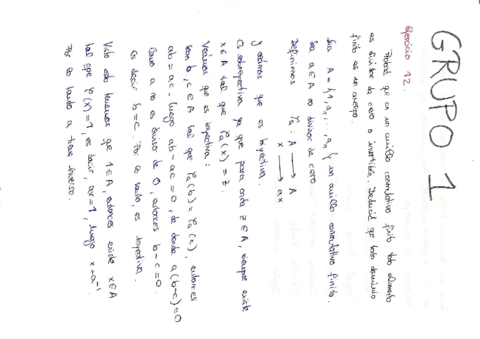 GRUPO 1
Ejercicio 12.
Probad que en un anillo conmutativo finito todo elemento
es divisor de cero o invertible. Deducid que todo dominio
finito es un cuerpo.
Sea A = {1, a1, ..., an} un anillo conmutativo finito.
Sea a ∈ A no divisor de cero
Definimos φa : A → A
x → ax
y vemos que es biyectiva.
Es sobreyectiva ya que para cada z ∈ A, siempre existe
x ∈ A tal que φa(x) = z.
Veamos que es inyectiva:
Sean b, c ∈ A tal que φa(b) = φa(c), entonces
ab = ac. Luego ab - ac = 0, de donde a(b-c) = 0
Como a no es divisor de 0, entonces b - c = 0.
Es decir b = c. Por lo tanto, es inyectiva.
Visto esto tenemos que 1 ∈ A, entonces existe x ∈ A
tal que φa(x) = 1, es decir, ax = 1, luego x = a⁻¹
Por lo tanto a tiene inverso.